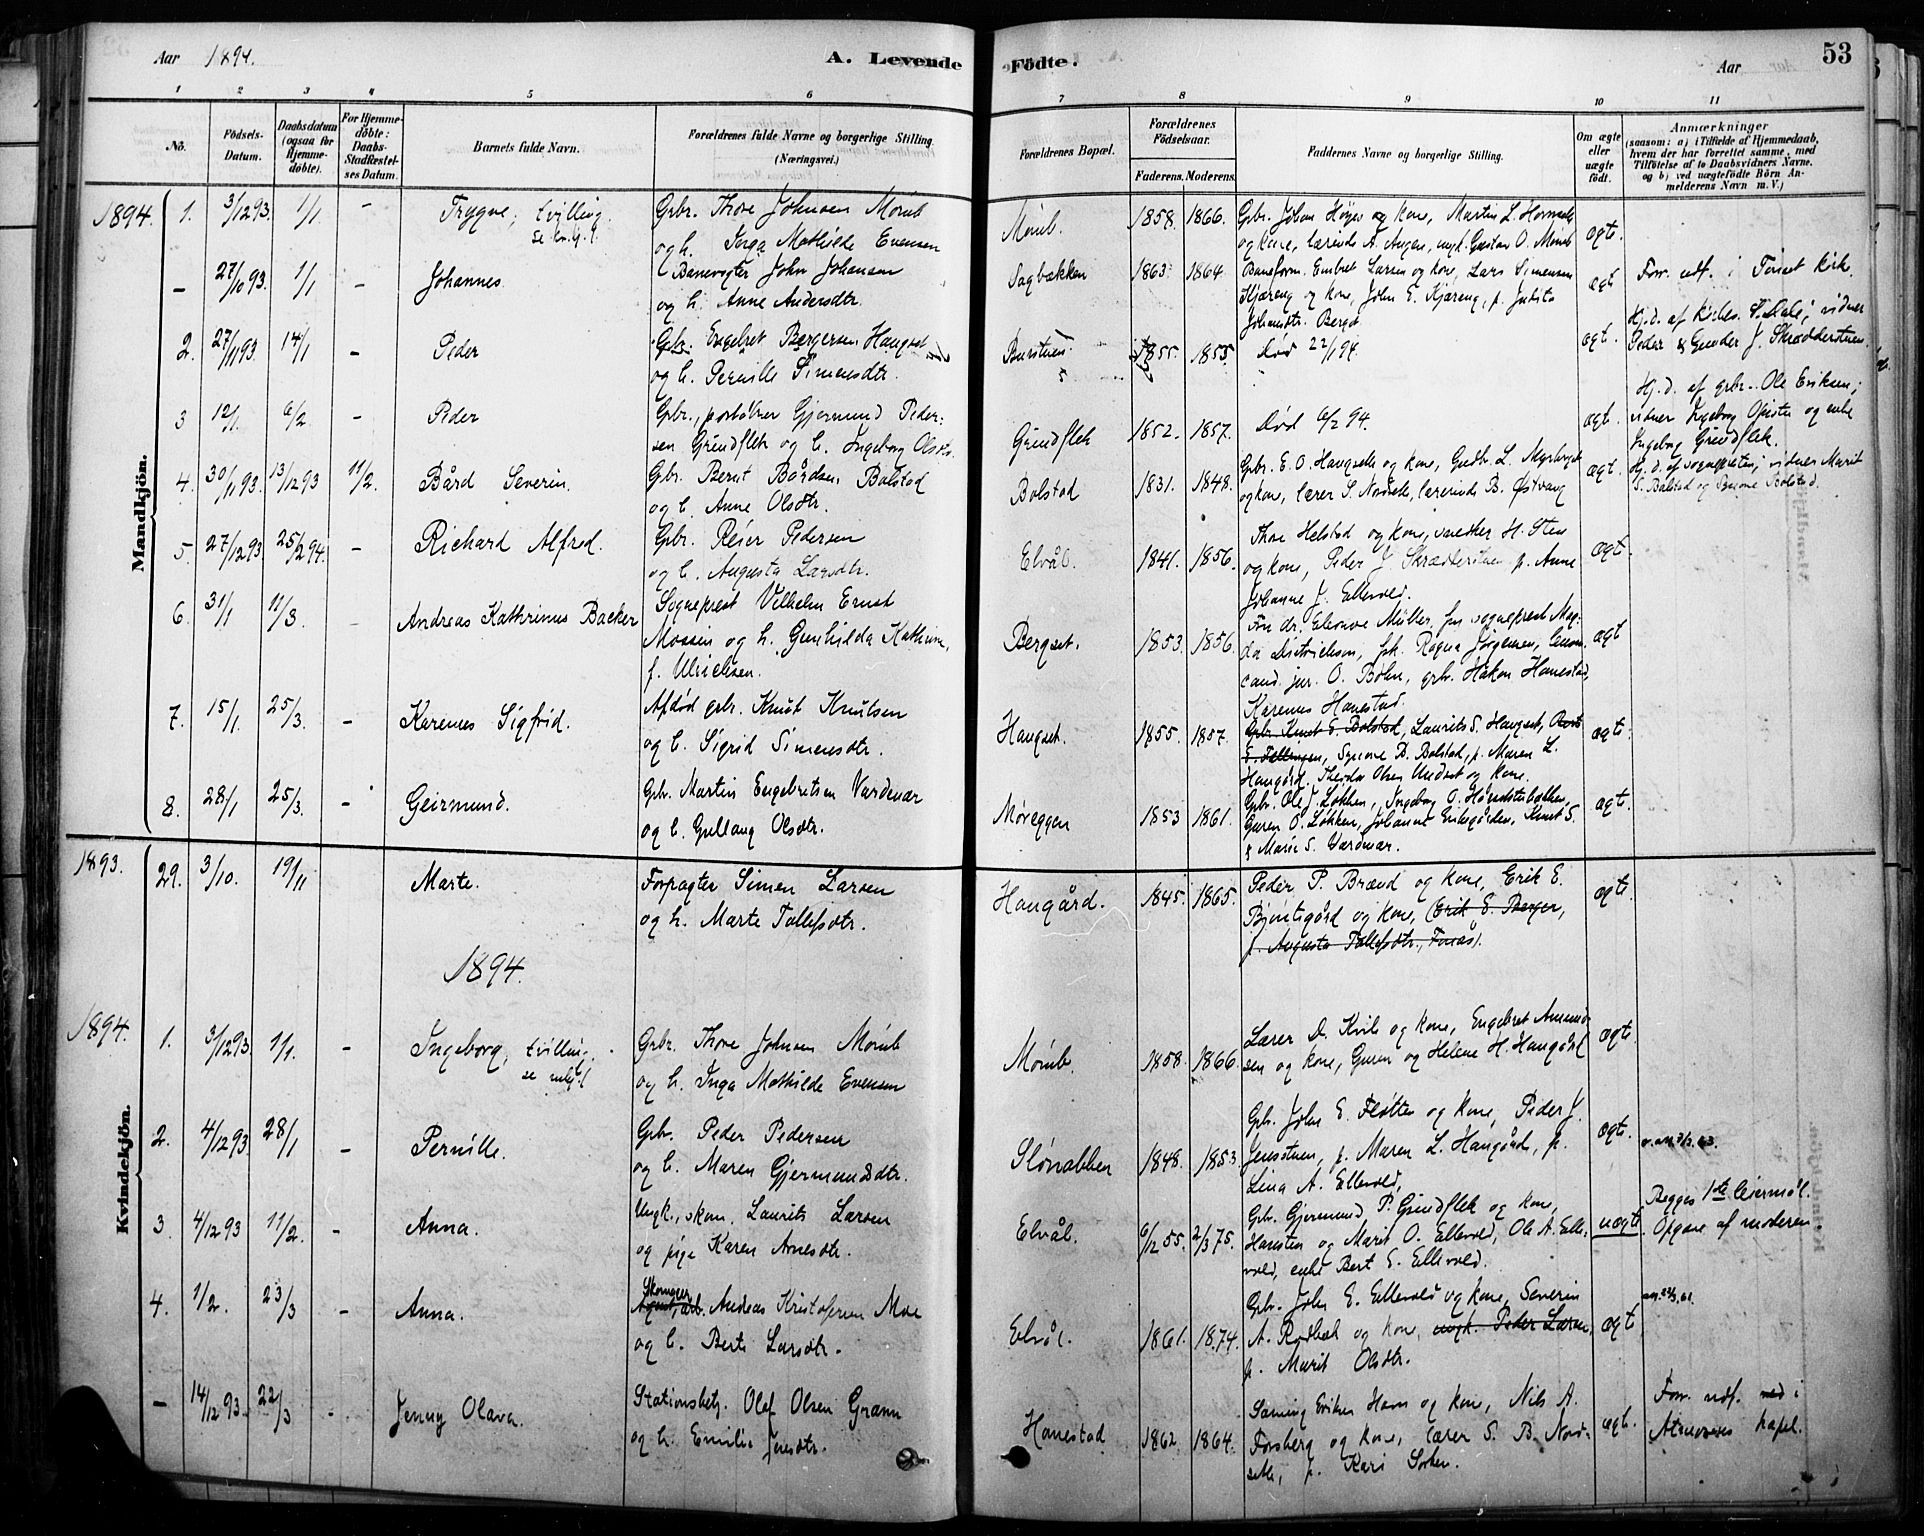 Aar 1894.
A. Levende Födte.
Aar
53
1 2 3 4 5 6 7 8 9 10 11
No.
Födsels-Datum.
Daabsdatum (ogsaa for Hjemme-döbte).
For Hjemme-döbte: Daabs-Stadfæstel-ses Datum.
Barnets fulde Navn.
Forældrenes fulde Navne og borgerlige Stilling. (Næringsvei.)
Forældrenes Bopæl.
Forældrenes Födselsaar.
Faderens. Moderens.
Faddernes Navne og borgerlige Stilling.
Om ægte eller uægte födt.
Anmærkninger
(saasom: a) i Tilfælde af Hjemmedaab,
hvem der har forrettet samme, med
Tilföielse af to Daabsvidners Navne.
og b) ved uægtefödte Börn An-
melderens Navn m. V.)
Mandkjön.
1894. 1. 3/12 93. 1/1 - Trygve, tvilling.
se kv.kj. 1.
Gbr. Thore Johnsen Mömb
og h. Inga Mathilde Evensen
Mömb. 1858. 1866.
og kone, lærerinde A. Augen, ungk. Gustav O. Mömb
ægte.
- 27/10 93. 1/1 - Johannes.
Banevogter John Johansen
og h. Anne Andersdtr.
Sagbakken 1863. 1864.
Baneform. Embret Larsen og kone, Lars Simensen
Kjæreng og kone, John E. Kjæreng, p. Judith
Johansdtr. Berget.
ægt.
For. udf. i Foriset kirk.
2. 27/11 93. 14/1 - Peder
Gbr. Engebret Bergersen Haugset
og h. Pernille Simensdtr.
1855. 1855. Død 22/1 94.
ægt.
vidner
Peder & Gunder J. Skrædderstuen.
3 12/1. 6/2. - Peder
Gbr., postaabner Gjermund Peder-
sen Grindflek og h. Ingeborg Olsdtr.
Grindflek 1852. 1857. Død 6/2 94.
ægt.
Hj.d. af gbr. Ole Eriksen;
vidner Ingeborg Opsiter og enke
Ingeborg Grindflek.
4. 30/11 93. 13/12 93 11/2. Bård Severin.
Gbr. Bernt Bårdsen Bolstad
og h. Anne Olsdtr.
Bolstad 1831. 1848.
Gbr. E. O. Haugseth og kone, Gudbr. L. Myrbryet
og kone, lærer S. Nordseth, lærerinde B. Østvang
ægt.
Hj.d. af sognepresten; vidner Marit
S. Bolstad og Synove Bolstad.
5. 27/12 93. 25/2 94. - Richard Alfred.
Gbr. Reier Pedersen
og h. Augusta Larsdtr.
Elvål. 1841. 1856.
Thore Helstad og kone, snedker H. Sten
og kone, Peder J. Skrædderstuen p. Anne
Johanne J. Ellevold.
ægt.
6. 31/1 11/3. Andreas Kathrinus Backer
Sogneprest Vilhelm Ernst
Mossin og h. Gunhilda Kathrine,
f. Ulrichsen.
Bergset. 1853. 1856.
Fru dr. Eleonore Müller, fru sogneprest Mag-
da Diétrichson, frk. Ragna Jörgensen,
cand. jur. O. Böhn, gbr. Håkon Hanestad,
Karenus Hanestad.
ægt
7. 15/1. 25/3. - Karenus Sigfrid.
Afdöd gbr. Knut Knutsen
og h. Sigrid Simensdtr.
Haugset. 1855. 1857.
Gbr. Knut E. Bolstad, Laurits S. Haugset, Berit
E. Tellingen, Synove B. Bolstad, p. Maren L.
Haugård, Theodor Olsen Undset og kone.
ægt.
8. 28/1 25/3. - Geirmund.
Gbr. Martin Engebretsen Vardenær
og h. Gullaug Olsdtr.
Møreggen 1853 1861.
Gbr. Ole J. Løkken, Ingeborg O.
Guren O. Løkken, Johanne Eriksgården, Knut S.
& Marie S. Vardenær.
ægt.
1893. 29. 3/10. 19/11 Marte.
Forpagter Simen Larsen
og h. Marte Tollefsdtr.
Haugård. 1845. 1865.
Peder P. Brænd og kone, Erik E.
Bjöntegård og kone, (Erik E. Berger,
p. Augusta Tollefsdtr., Furås).
ægt.
1894.
Kvindekjön.
1894. 1. 3/12 93. 1/1. - Ingeborg, tvilling.
se mkj. 1
Gbr. Thore Johnsen Mömb
og h. Inga Mathilde Evensen
Mömb. 1858. 1866.
Lærer D. Kvile og kone, Engebret Amund-
sen og kone, Guren og Helene H. Haugård
ægt.
2. 4/12 93. 28/1 - Pernille.
Gbr. Peder Pedersen
og h. Maren Gjermundsdtr.
Slönabben 1848. 1853.
Gbr. John E. Fløtten og kone, Peder J.
Jensstuen, p. Maren L. Haugård, p.
Lina A. Ellevold,
ægt.
3 4/12 93 11/2. - Anna.
Ungk., skom. Laurits Larsen
og pige Karen Arnesdtr.
Elvål. 6/12 55. 2/3 75.
Gbr. Gjermund P. Grindflek og kone,
Hansten og Marit O. Ellevold, Ole A. Elle-
vold, enke Bert E. Ellevold.
uægt.
Begges 1ste leiermål.
Opgave af moderen
4. 1/2. 23/3 - Anna.
Skomager
Andreas Kristofersen Moe
og h. Berte Larsdtr.
Elvål. 1861. 1874.
Gbr. John E. Ellevold og kone, Severin
A. Rödbæk og kone, ungk. Peder Larsen,
p. Marit Olsdtr.
ægt
- 14/12 93. 22/3 - Jenny Olava.
Stationsbetj. Olaf Olsen Grann
og h. Emilie Jensdtr.
Hanestad 1862. 1864.
Sæming Eriksen Horn og kone, Nils A.
Forsberg og kone, lærer S. B. Nord-
seth, p. Kari Sorken.
ægt.
For. udf. ned i
Atneosens kapel.